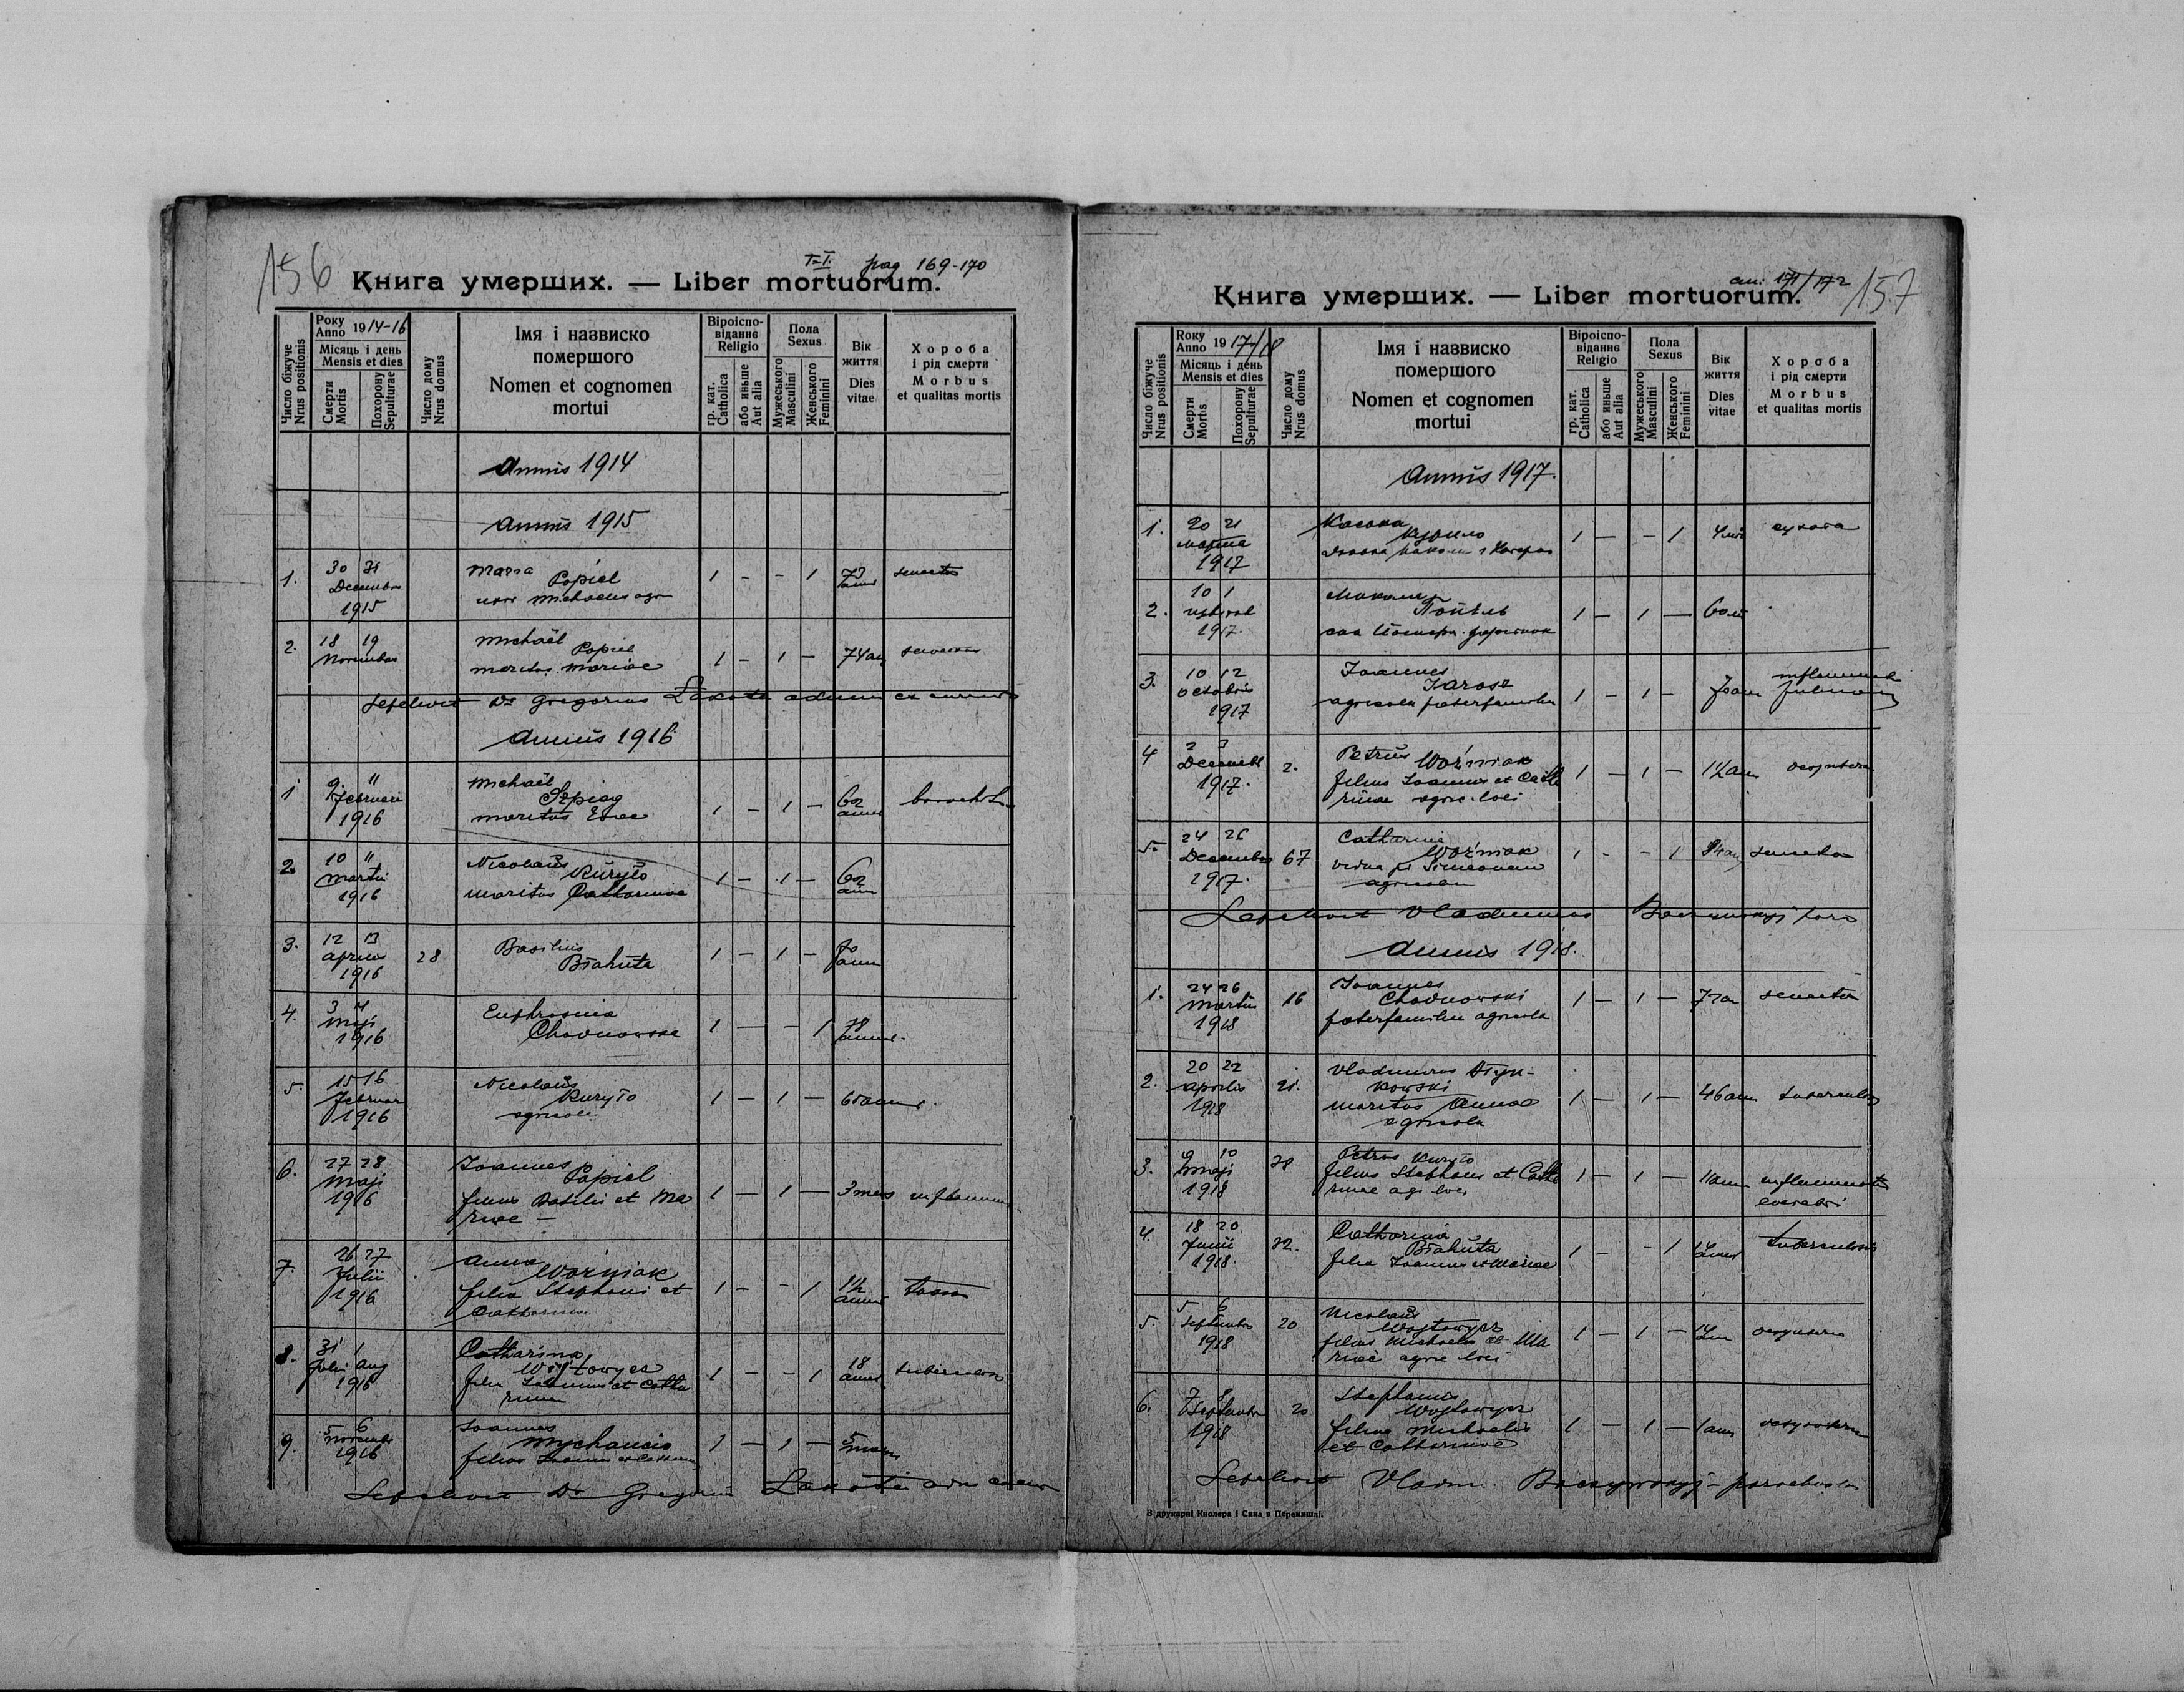 156
T-I. pag 169-170
Книга умерших. — Liber mortuorum.
Число біжуче
Nrus positionis
Року
Anno 1914-16
Місяць і день
Mensis et dies
Смерти
Mortis
Похорону
Sepulturae
Число дому
Nrus domus
Імя і назвиско
помершого
Nomen et cognomen
mortui
Віроіспо-
віданнє
Religio
гр. кат.
Catholica
або иньше
Aut alia
Пола
Sexus
Мужеського
Masculini
Женського
Feminini
Вік
життя
Dies
vitae
Хороба
і рід смерти
Morbus
et qualitas mortis
Annus 1914
Annus 1915
1. 30 31
Decembris
1915
Maria
Popiel
uxor Michaelis agr
1 - - 1
73
anni
senectus
2. 18 19
Novembris
Michaël
Popiel
maritus Mariae
1 - 1 —
74 an
Sepelivit Dr Gregorius Lakota
Annus 1916
1 9. 11
Februarii
1916
Michaël
Szpiag
maritus
1 - 1 —
62
anni
2. 10 11
Martii
1916
Nicolaus
Kuryło
maritus Catharinae
1 — 1 —
62
ann
3. 12 13
Aprilis
1916
28
Basilius
Brahuta
1 — 1 —
70
anni
4. 3 4
Maji
1916
Euphrosina
Chodnowska
1 — - 1
78
5. 15 16
Februar
1916
Nicolaus
Kuryło
agricola
1 — 1 —
6. 27 28
Maji
1916
Joannes
Popiel
filius Basilii et Ma
riae —
1 — 1 —
3 mens
7. 26 27
Julii
1916
Anna
Woźniak
filia Stephani et
Catharinae
1 — - 1
1½
anni
8. 31 1
Julii Aug
1916
Catharina
Wojtowycz
filia Joannis et Catha
rinae
1 — - 1
18
anni
tuberculosis
9. 5 6
Novembr
1916
Joannes
Mychancio
filius Joannis et Catharin
1 — 1 —
5
mens
Sepelivit Dr Gregorius Lakota
157
стр. 171/172
Книга умерших. — Liber mortuorum.
Число біжуче
Nrus positionis
Року
Anno 1917/18
Місяць і день
Mensis et dies
Смерти
Mortis
Похорону
Sepulturae
Число дому
Nrus domus
Імя і назвиско
помершого
Nomen et cognomen
mortui
Віроіспо-
віданнє
Religio
гр. кат.
Catholica
або иньше
Aut alia
Пола
Sexus
Мужеського
Masculini
Женського
Feminini
Вік
життя
Dies
vitae
Хороба
і рід смерти
Morbus
et qualitas mortis
Annus 1917.
1. 20 21
марта
1917
Курило
1 — - 1
4 літ
сухота
2. 10 1
1917.
Попѣль
1 — 1 —
3. 10 12
Octobris
1917
Joannes
Jarosz
agricola paterfamilias
1 — 1 —
70 ann
4 2 3
Decembr
1917.
2.
Petrus
Woźniak
filius Joannis et Catha
rinae agric. loci
1 — 1 —
5. 24 26
Decembris
1917.
67
Catharina
Woźniak
vidua p. Simeonem
agricolam
1 - - 1
84 an
Sepelivit Vladimirus
Annus 1918.
1. 24 26
Martii
1918
16
Joannes
Chodnowski
paterfamilias agricola
1 — 1 —
senectus
2. 20 22
Aprilis
1918
21.
Vladimirus
kowski
maritus Annae
agricola
1 — 1 —
46 ann
tuberculos
3. 9 10
Maji
1918
38
Petrus Kuryło
filius Stephani et Catha
rinae agr loci
1 — 1 —
inflammatio
cerebri
4. 18 20
Junii
1918.
32.
Catharina
Brahuta
filia Joannis et Mariae
1 — - 1
tuberculosis
5. 5 6
Septembris
1918
20
Nicolaus
Wojtowycz
filius Michaelis et Ma
riae agric loci
1 — 1 —
6. 7 8
Septembr
1918
20
Stephanus
Wojtowycz
filius Michaelis
et Catharinae
1 — 1 —
1 ann
Sepelivit Vladim.
В друкарні Кнолера і Сина в Перемишлі.